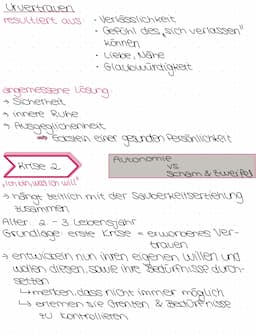 Urvertrauen
resultiert aus: · Verlässlichkeit
· Gefühl des „sich verlassen" können
· Liebe, Nähe
· Glaubwürdigkeit
angemessene Lösung:
→ Sicherheit
→ innere Ruhe
→ Ausgeglichenheit
⇒ Eckstein einer gesunden Persönlichkeit
Krise 2
Autonomie
vs
Scham & Zweifel
„Ich bin, was ich will"
→ hängt zeitlich mit der Sauberkeitserziehung
zusammen
Alter: 2 - 3 Lebensjahr
Grundlage: erste Krise = erworbenes Ver-
trauen
→ entwickeln nun ihren eigenen Willen und
wollen diesen, sowie ihre Bedürfnisse durch-
setzen
↳ merken, dass nicht immer möglich
↳ erlernen sie Grenzen & Bedürfnisse
zu kontrollieren